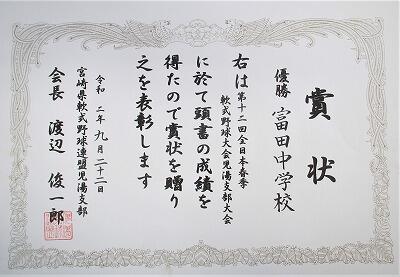 賞状
優勝 富田中学校
右は第十二回全日本春季
軟式野球大会児湯支部大会
に於て頭書の成績を
得たので賞状を贈り
之を表彰します
令和二年九月二十二日
宮崎県軟式野球連盟児湯支部
会長 渡辺俊一郎